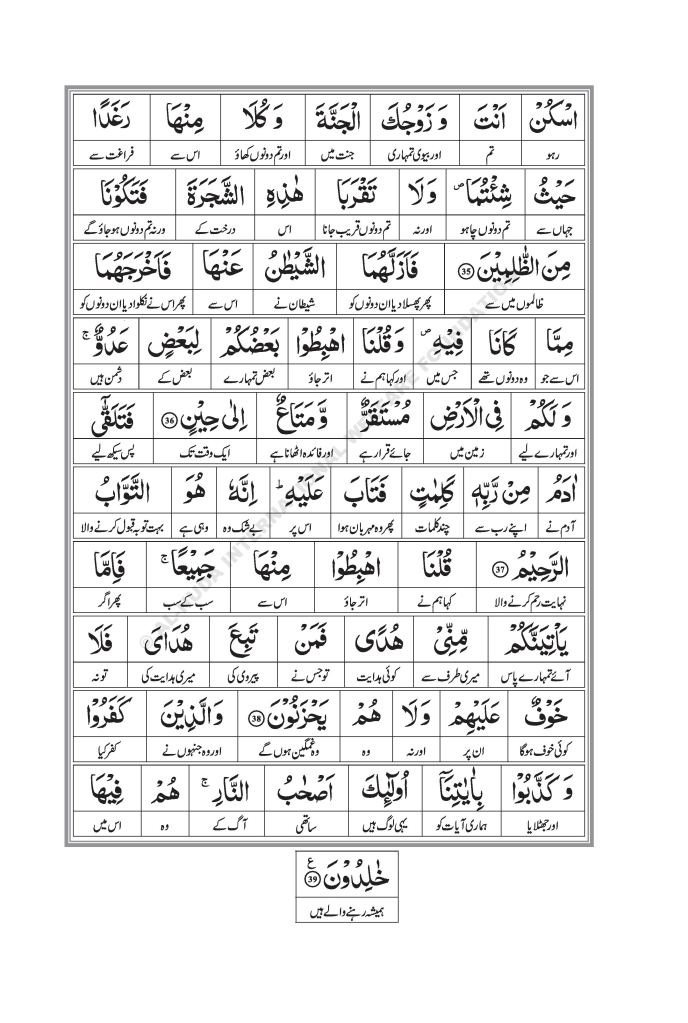 اُسْكُنْ اَنْتَ وَ زَوْجُكَ الْجَنَّةَ وَ كُلَا مِنْهَا رَغَدًا
رہو تم اور بیوی تمہاری جنت میں اور تم دونوں کھاؤ اس سے فراغت سے
حَيْثُ شِئْتُمَا ۪ وَلَا تَقْرَبَا هٰذِهِ الشَّجَرَةَ فَتَكُوْنَا
جہاں سے تم دونوں چاہو اور نہ تم دونوں قریب جانا اس درخت کے ورنہ تم دونوں ہو جاؤ گے
مِنَ الظّٰلِمِيْنَ 35 فَاَزَلَّهُمَا الشَّيْطٰنُ عَنْهَا فَاَخْرَجَهُمَا
ظالموں میں سے پھر پھسلا دیا ان دونوں کو شیطان نے اس سے پھر اس نے نکلوا دیا ان دونوں کو
مِمَّا كَانَا فِيْهِ ۪ وَ قُلْنَا اهْبِطُوْا بَعْضُكُمْ لِبَعْضٍ عَدُوٌّ ۚ
اس سے جو وہ دونوں تھے جس میں اور کہا ہم نے اتر جاؤ بعض تمہارے بعض کے دشمن ہیں
وَ لَكُمْ فِي الْاَرْضِ مُسْتَقَرٌّ وَّ مَتَاعٌ اِلٰى حِيْنٍ 36 فَتَلَقّٰٓى
اور تمہارے لیے زمین میں جائے قرار ہے اور فائدہ اٹھانا ہے ایک وقت تک پس سیکھ لیے
اٰدَمُ مِنْ رَّبِّهٖ كَلِمٰتٍ فَتَابَ عَلَيْهِ ؕ اِنَّهٗ هُوَ التَّوَّابُ
آدم نے اپنے رب سے چند کلمات پھر وہ مہربان ہوا اس پر بے شک وہ وہی ہے بہت توبہ قبول کرنے والا
الرَّحِيْمُ 37 قُلْنَا اهْبِطُوْا مِنْهَا جَمِيْعًا ۚ فَاِمَّا
نہایت رحم کرنے والا کہا ہم نے اتر جاؤ اس سے سب کے سب پھر اگر
يَاْتِيَنَّكُمْ مِّنِّيْ هُدًى فَمَنْ تَبِعَ هُدَايَ فَلَا
آئے تمہارے پاس میری طرف سے کوئی ہدایت تو جس نے پیروی کی میری ہدایت کی تو نہ
خَوْفٌ عَلَيْهِمْ وَلَا هُمْ يَحْزَنُوْنَ 38 وَالَّذِيْنَ كَفَرُوْا
کوئی خوف ہوگا ان پر اور نہ وہ وہ غمگین ہوں گے اور وہ جنہوں نے کفر کیا
وَ كَذَّبُوْا بِاٰيٰتِنَآ اُولٰٓئِكَ اَصْحٰبُ النَّارِ ۚ هُمْ فِيْهَا
اور جھٹلایا ہماری آیات کو یہی لوگ ہیں ساتھی آگ کے وہ اس میں
خٰلِدُوْنَ 39 ع
ہمیشہ رہنے والے ہیں
INTERNATIONAL WELFARE FOUNDATION